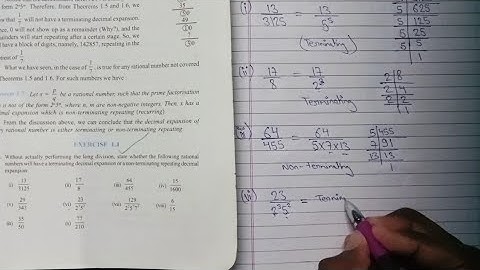 form 2ⁿ5ᵐ. Therefore, from Theorems 1.5 and 1.6, we
will have a terminating decimal expansion.
0, will not show up as a remainder (Why?), and the
will start repeating after a certain stage. So, we
have a block of digits, namely, 142857, repeating in the
What we have seen, in the case of 1/7, is true for any rational number not covered
Theorems 1.5 and 1.6. For such numbers we have :
be a rational number, such that the prime factorisation
not of the form 2ⁿ5ᵐ, where n, m are non-negative integers. Then, x has a
decimal expansion which is non-terminating repeating (recurring).
From the discussion above, we can conclude that the decimal expansion of
every rational number is either terminating or non-terminating repeating.
EXERCISE 1.4
Without actually performing the long division, state whether the following rational
numbers will have a terminating decimal expansion or a non-terminating repeating decimal
expansion:
(i) 13/3125 (ii) 17/8 (iii) 64/455 (iv) 15/1600
(v) 29/343 (vi) 23/2³5² (vii) 129/2²5⁷7⁵ (viii) 6/15
(ix) 35/50 (x) 77/210
(i) 13/3125 = 13/5⁵
(Terminating)
5 625
5 125
5 25
5 5
1
(ii) 17/8 = 17/2³
Terminating
2 8
2 4
2 2
1
64/455 = 64/5×7×13
Non-Terminating
5 455
7 91
13 13
1
(vi) 23/2³5² = Termin